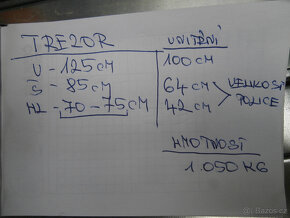 TREZOR
V - 125 CM
Š - 85 CM
HL - 70 - 75 CM
VNITŘNÍ
100 CM
64 CM
42 CM
VELIKOST
POLICE
HMOTNOST
1.050 KG
Bazos.cz